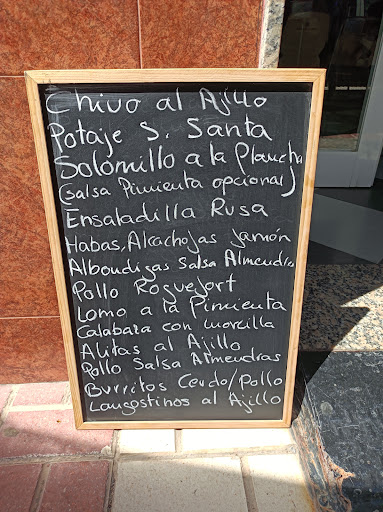 Chivo al Ajillo
Potaje S. Santa
Solomillo a la Plancha
(salsa Pimienta opcional)
Ensaladilla Rusa
Habas, Alcachojas jamón
Albondigas Salsa Almendra
Pollo Roquefort
Lomo a la Pimienta
Calabaza con morcilla
Alitas al Ajillo
Pollo Salsa Almendras
Burritos Cerdo/Pollo
Langostinos al Ajillo